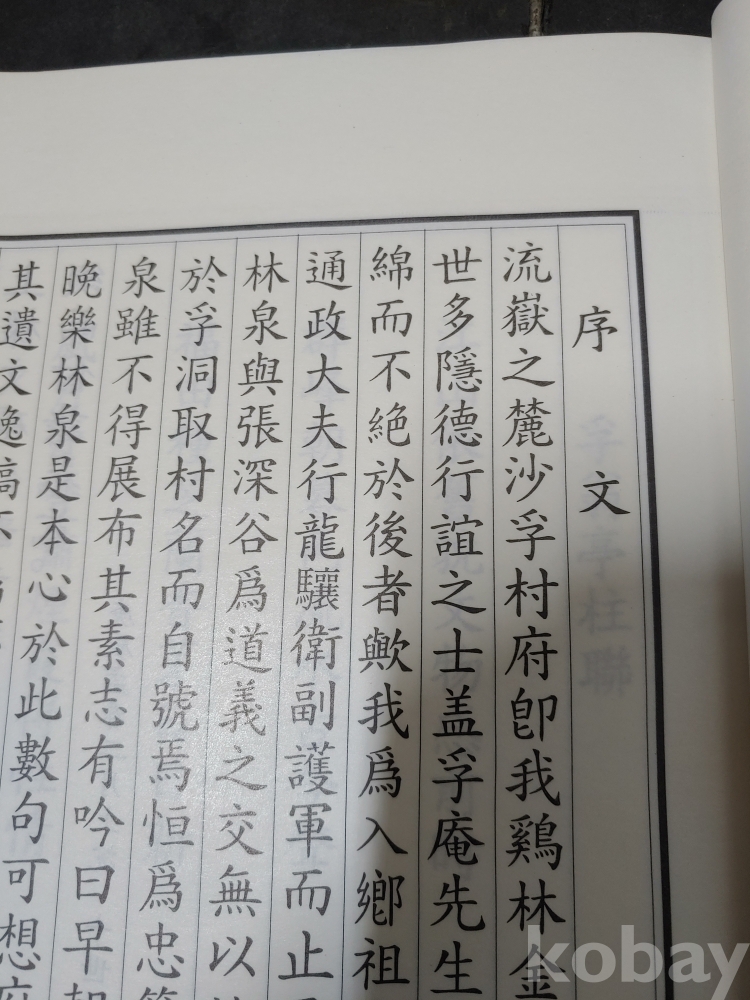 序文
流嶽之麓沙孚村府卽我鷄林金
世多隱德行誼之士盖孚庵先生
綿而不絶於後者歟我爲入鄕祖
通政大夫行龍驤衛副護軍而止
林泉與張深谷爲道義之交無以
於孚洞取村名而自號焉恒爲忠
泉雖不得展布其素志有吟曰早
晩樂林泉是本心於此數句可想
其遺文逸稿不
kobay